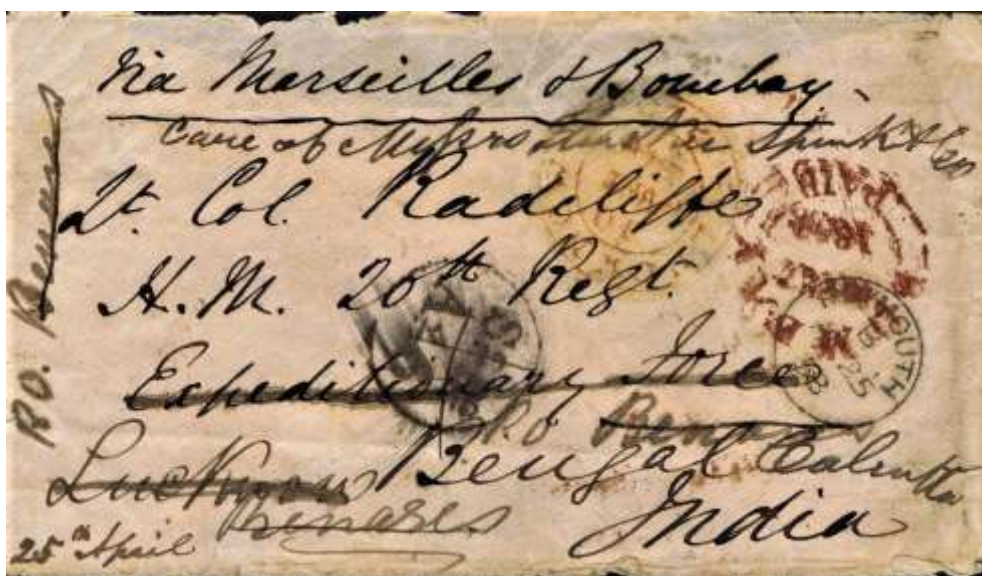 Via Marseilles & Bombay
Care of Messrs Spink & Co
Lt Col. Radcliffe
H.M. 20th Regt.
Expeditionary Force
P.O. Benares
Lucknow Bengal Calcutta
Benares India
25th April
P.O. Benares
PAID
MOUTH
25
58